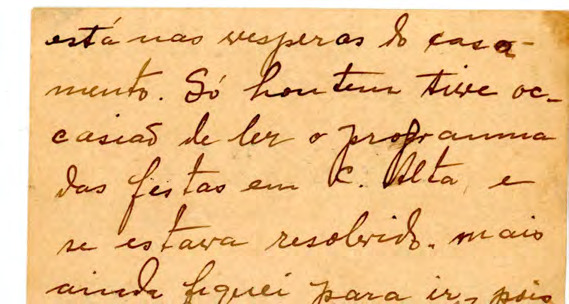 está nas vesperas do casa-
mento. Só hontem tive oc-
casião de ler o programma
das festas em C. Alta, e
se estava resolvido, mais
ainda fiquei para ir, pois